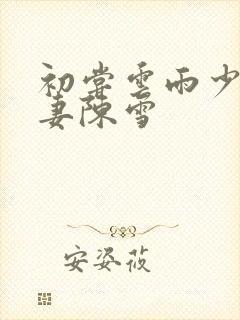 初尝雲雨少
妻陳雪
安姿莜